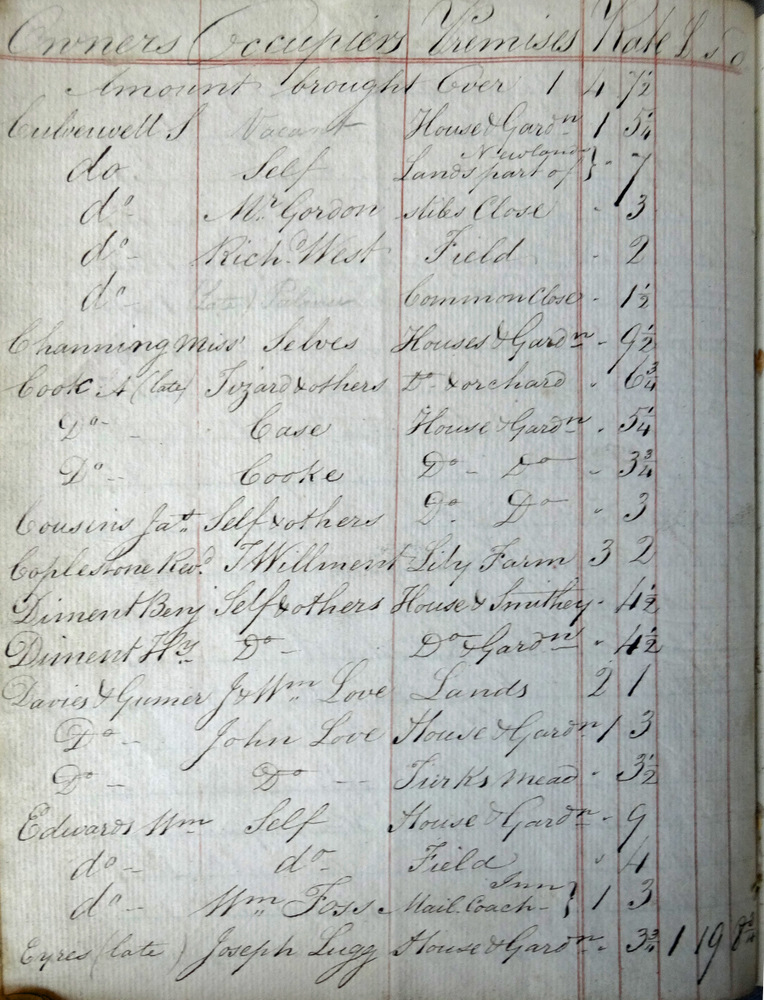 Owners Occupiers Premises Rate £ s d
Amount brought Over 1 4 7½
Culverwell S Vacant House & Gardn 1 5¼
do Self Lands part of Newlands } - 7
do - Mr. Gordon stiles Close - 3
do - Richd. West Field - 2
do - (late) Palmer Common Close - 1½
Channing Miss Selves Houses & Gardn - 9½
Cook A (late) Tizard & others Do & orchard - 6¾
Do - Case House & Gardn - 5¼
Do - Cooke Do - Do - 3¾
Cousins Jas. Self & others Do Do - 3
Coplestone Revd. J Willment Lily Farm 3 2
Diment Benj Self & others House & Smithey - 4½
Diment Hy Do - Do & Gardn - 4½
Davies & Gumer J & Wm Love Lands 2 1
Do - John Love House & Gardn 1 3
Do - Do - - Turks mead - 3½
Edwards Wm Self House & Gardn - 9
do - do - Field - 4
do - Wm Foss Mail Coach Inn } 1 3
Eyres (late) Joseph Lugg House & Gardn - 3¾ 1 19 8¾